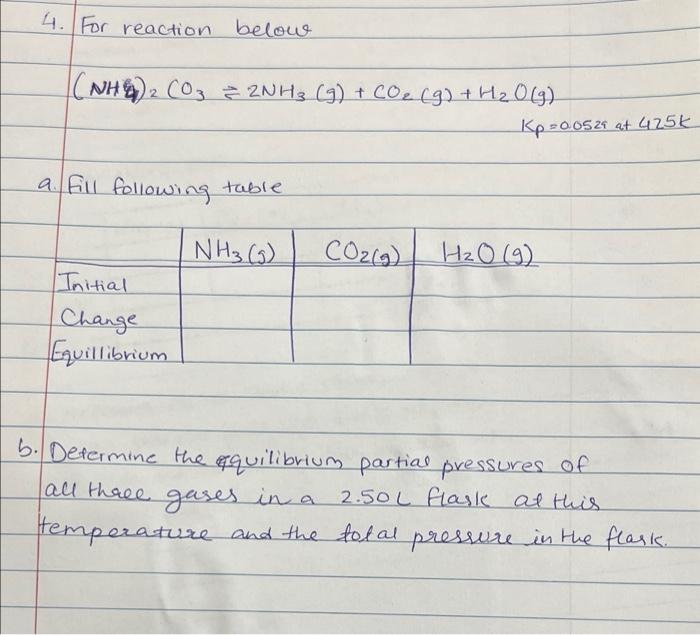 4. For reaction below
(NH4)2 CO3 ⇌ 2NH3 (g) + CO2 (g) + H2O(g)
Kp = 0.0529 at 425k
a. Fill following table
NH3 (g) CO2(g) H2O (g)
Initial
Change
Equillibrium
b. Determine the equilibrium partial pressures of
all three gases in a 2.50L flask at this
temperature and the total pressure in the flask.